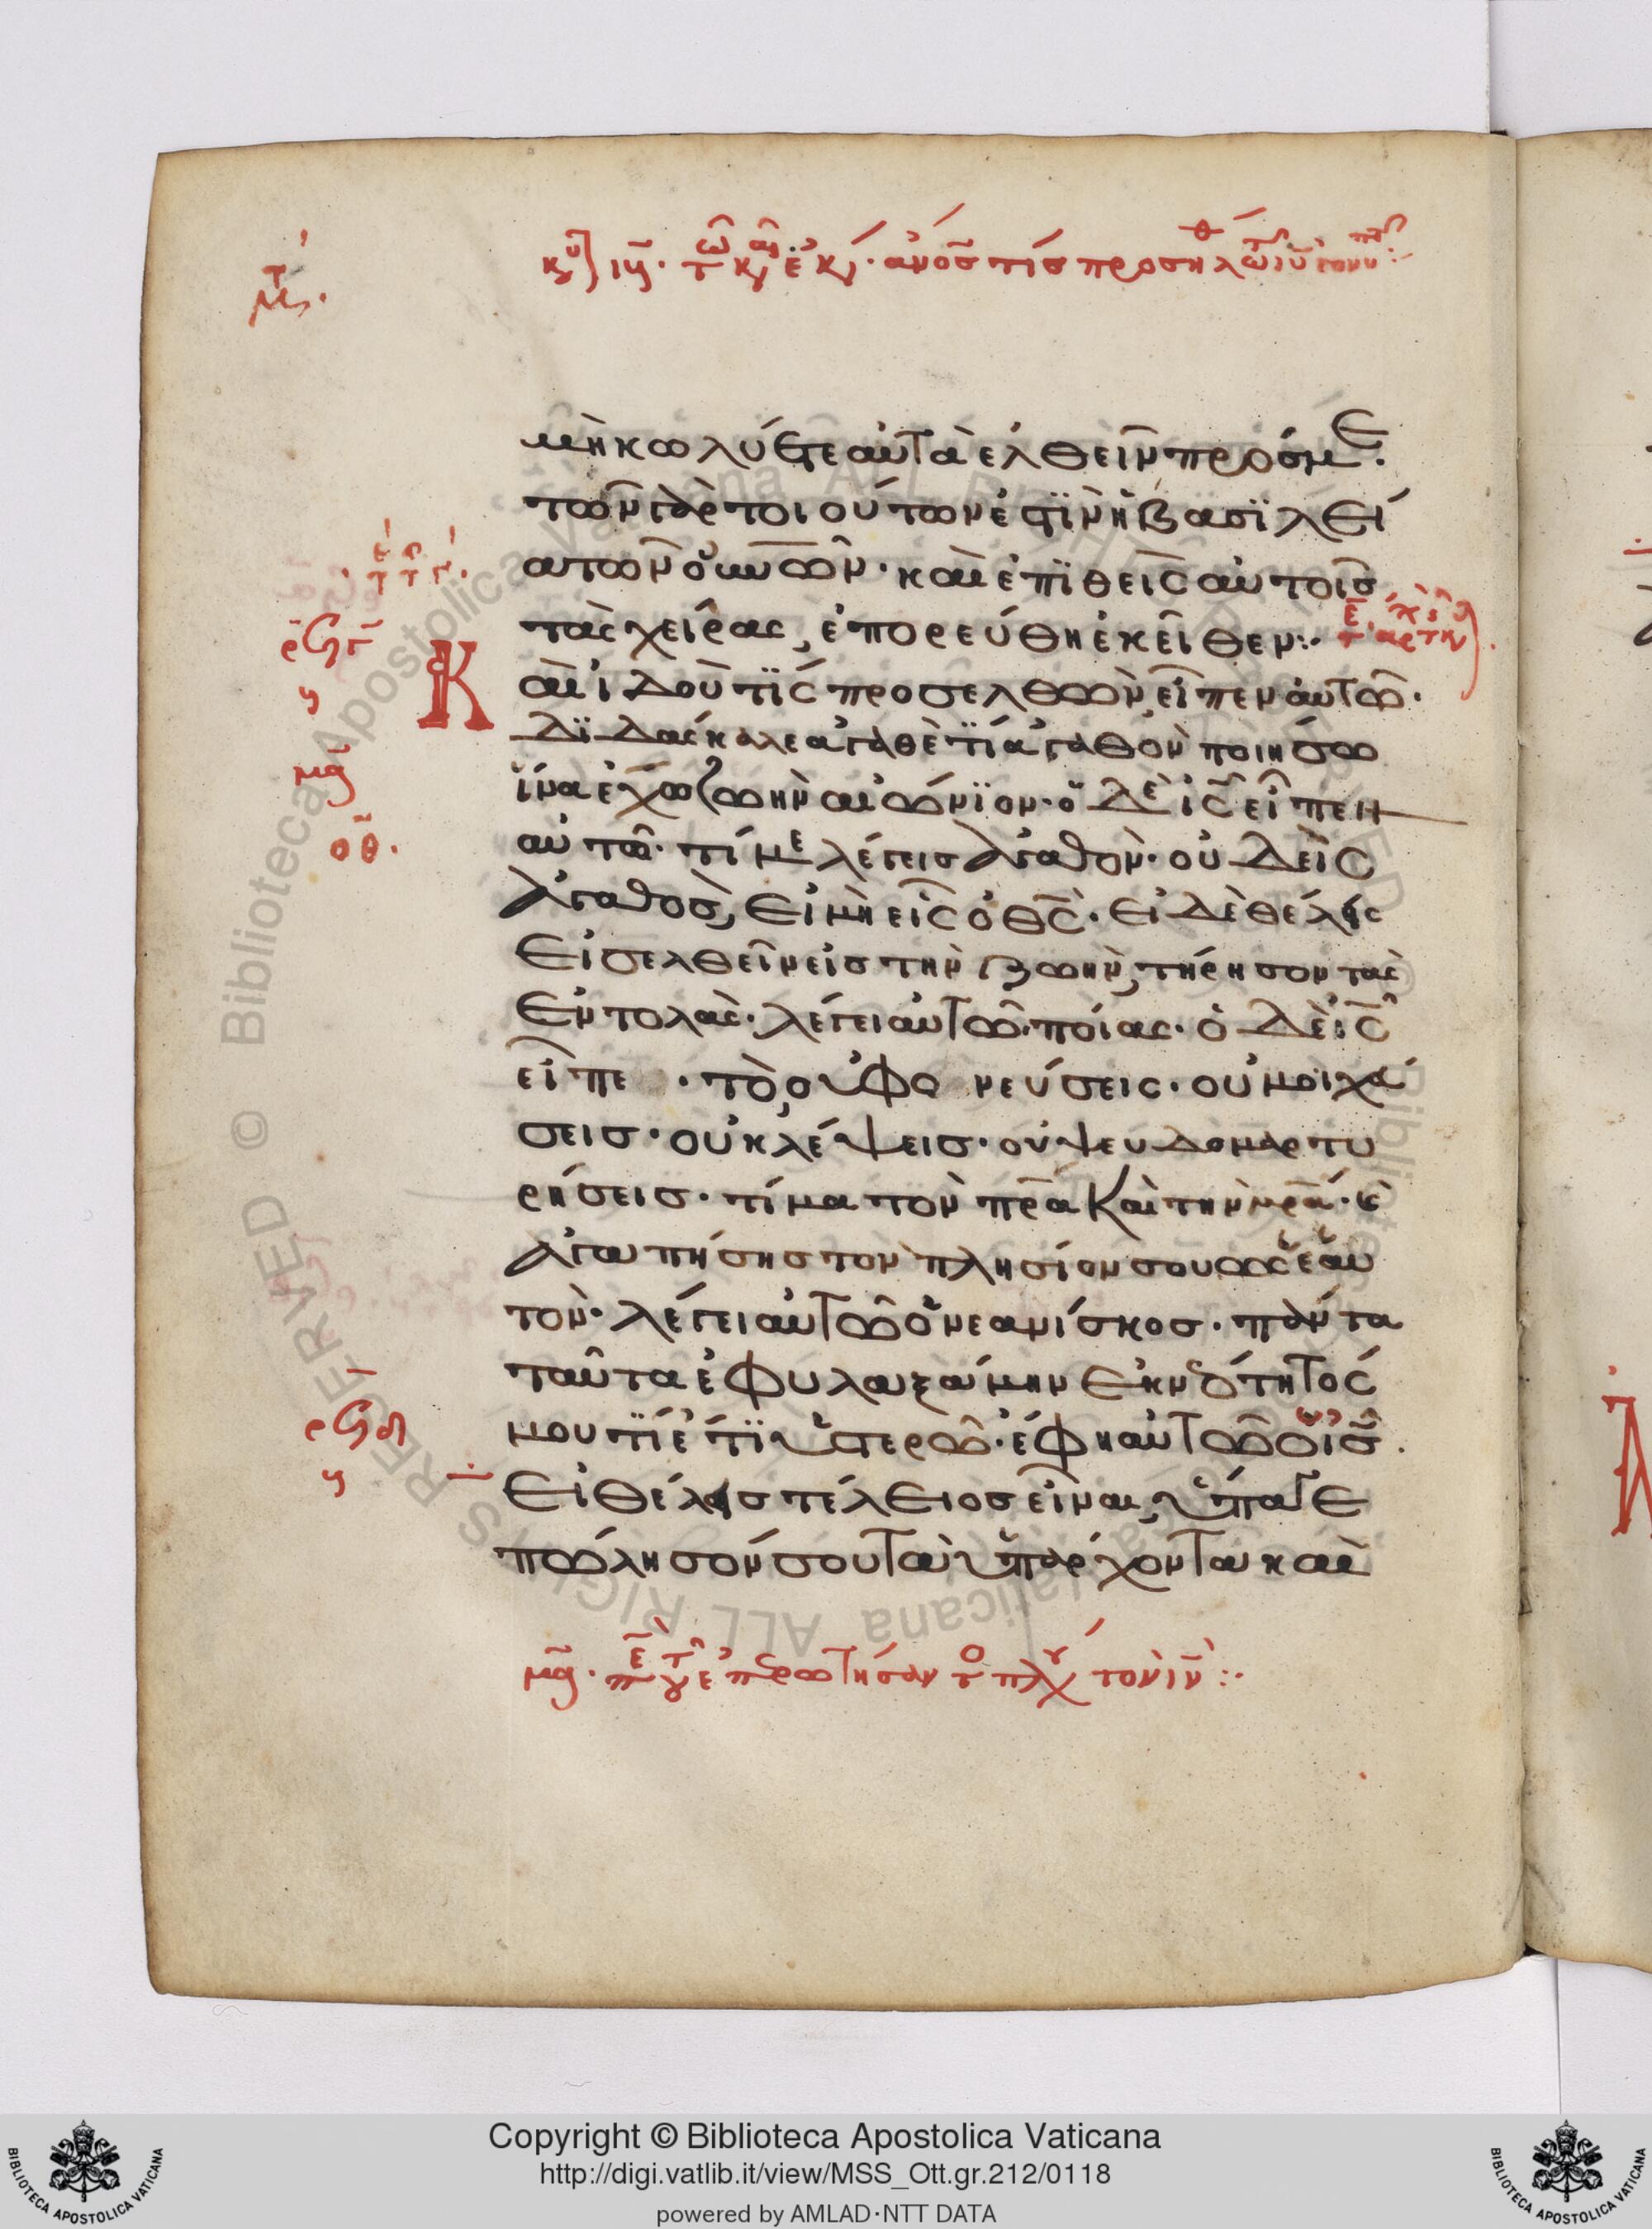 κυ) ιβ. τῶ καιρῷ ἐκ. ἀνο̅σ τίσ προσῆλθ τῶ ιυ
μὴ κωλύετε αὐτὰ ἐλθεῖν πρόσ με.
τῶν γὰρ τοιούτων ἐστὶν ἡ βασιλεί
α τῶν οὐνῶν. καὶ ἐπιθεὶς αὐτοῖσ
τὰς χεῖρας, ἐπορεύθη ἐκεῖθεν:·
Καὶ ἰδοῦ τίς προσελθὼν, εἶπεν αὐτῶ.
Διδάσκαλε ἀγαθὲ τί ἀγαθὸν ποιήσω
ἵνα ἔχω ζωὴν αἰώνϊον. ὁ δὲ ἰς̅ εἶπεν
αὐτῶ. τί με λέγεισ ἀγαθὸν. οὐδεὶς
ἀγαθὸσ, εἰ μὴ εἷς ὁ θς̅. εἰ δὲ θέλεις
εἰσελθεῖν εἰσ τὴν ζωὴν, τήρησον τὰς
ἐντολάς. λέγει αὐτῶ. ποίας. ὁ δὲ ἰς̅
εἶπε . τὸ, οὐ φο νεύσεις. οὐ μοιχεύ
σεισ. οὐ κλέψεισ. οὐ ψευδομαρτυ
ρήσεισ. τίμα τὸν πρ̅α καὶ τὴν μρ̅α. καὶ
ἀγαπήσησ τὸν πλησίον σου ὡς ἑαυ
τὸν. λέγει αὐτῶ ὁ νεανίσκοσ. πάντα
ταῦτα ἐφυλαξάμην ἐκ νεότητός
μου τί ἔτι ὑστερῶ. ἔφη αὐτῶ ὁ ἰσ̅.
εἰ θέλεισ τέλειοσ εἶναι, ὕπαγε
πώλησόν σου τὰ ὑπάρχοντα καὶ
ρϟγ
ϟ
μθ
οθ.
ρϟδ
ϟ
Copyright © Biblioteca Apostolica Vaticana
http://digi.vatlib.it/view/MSS_Ott.gr.212/0118
powered by AMLAD·NTT DATA
BIBLIOTECA APOSTOLICA VATICANA
BIBLIOTECA APOSTOLICA VATICANA